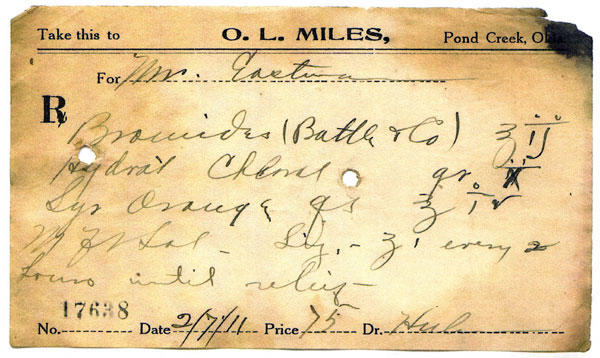 Take this to O. L. MILES, Pond Creek, Okla.
For Mr. Eastman
℞
Bromides (Battle & Co) ʒ ij
Hydrat Chloral gr
Syr Orange qs ℥
M Ft Sol - Sig. - ʒ i every 2
hours until relief -
17638
No. Date 2/7/11 Price 75 Dr.